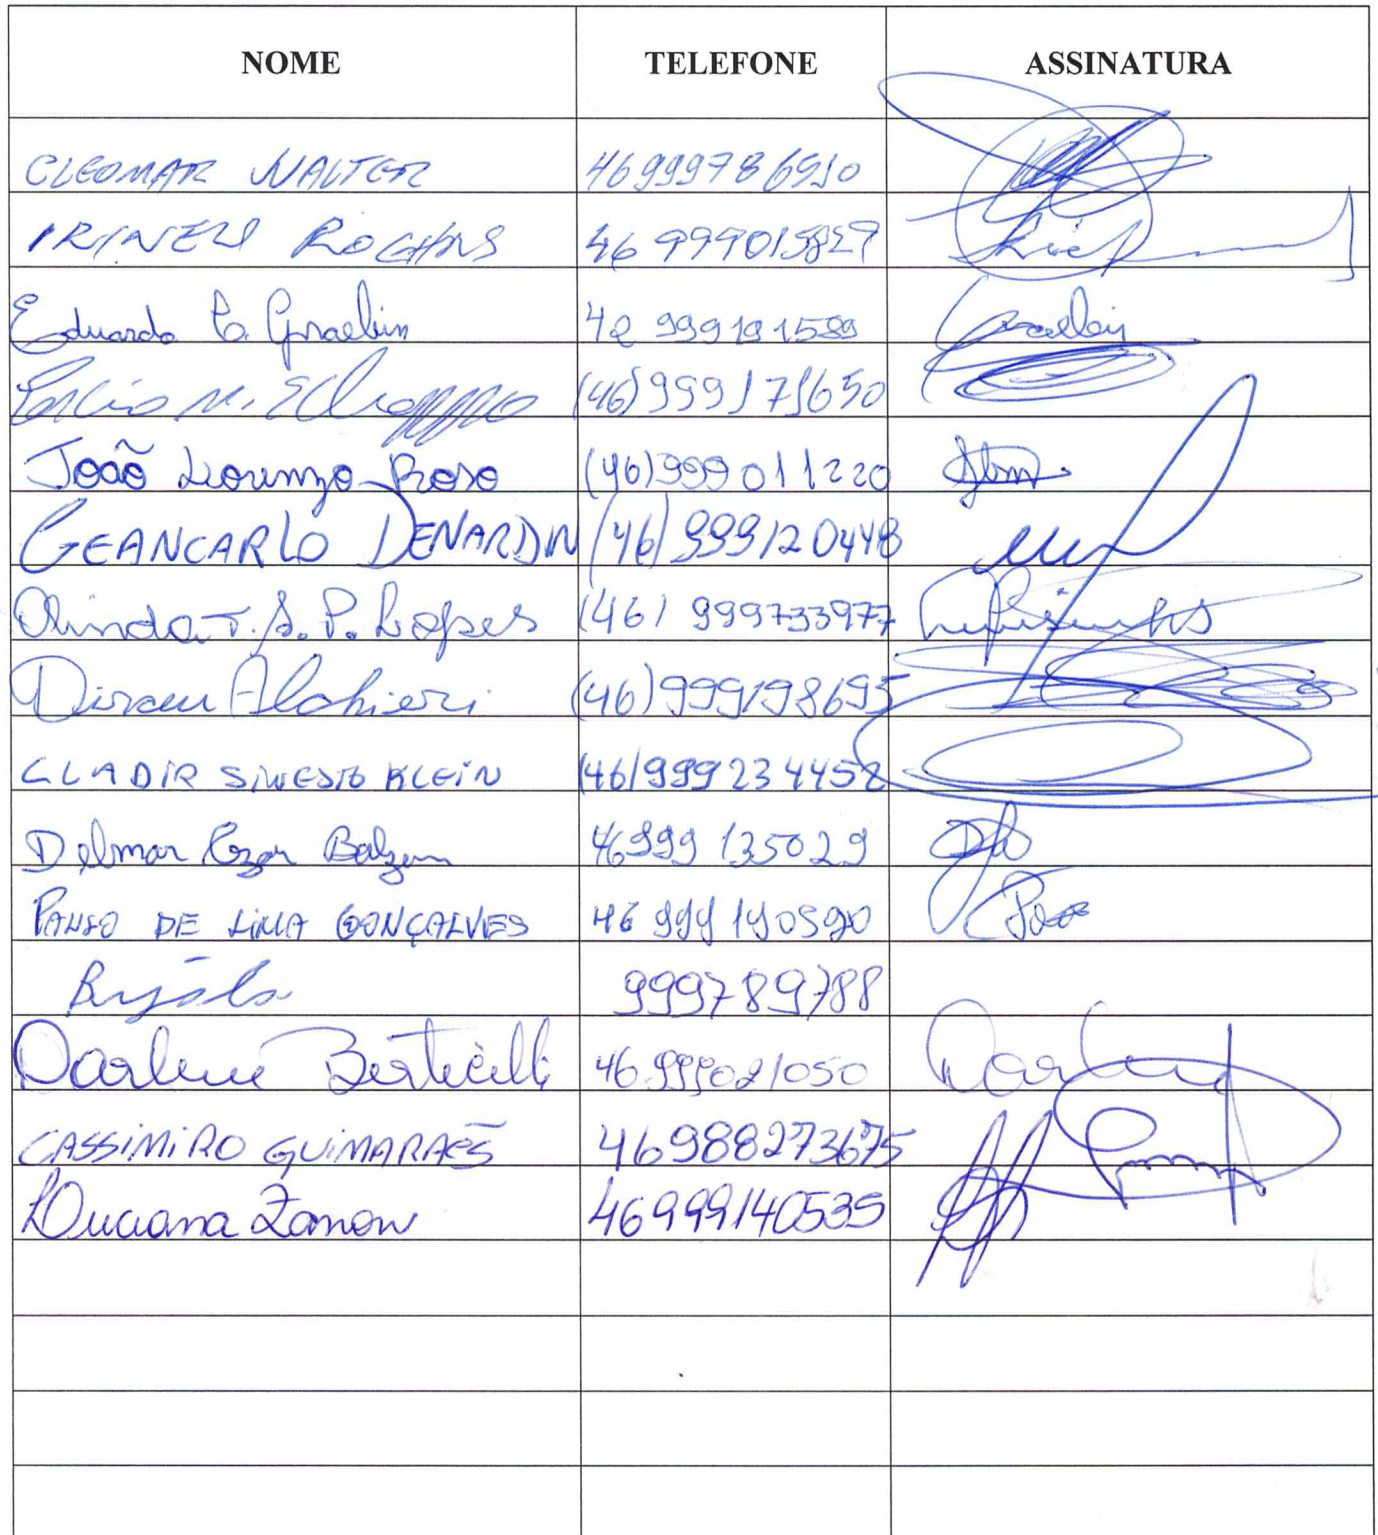 NOME TELEFONE ASSINATURA
CLEOMAR WALTER 46999786510
IRINEU ROCHNS 46 999015827
Eduardo C. Graebin 42 999191599 Graebin
(46)999171650
João Lorenzo Roso (46)999011220
GEANCARLO DENARDIN (46) 999120448
Olinda T. S. P. Lopes (46) 999733977
Dirceu Alchieri (46)999198695
CLADIR SINESIO KLEIN (46)999234452
Delmar Cezar Balzan 46999 135029
PAULO DE LIMA GONÇALVES 46 999 190590
999789788
Darlene Berticelli 46.999021050 Darlene
CASSIMIRO GUIMARAES 46988273675
Luciana Zanon 46999140535